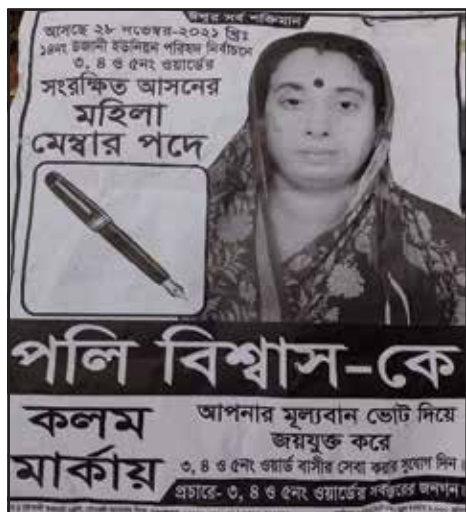 ঈশ্বর সর্ব শক্তিমান
আসছে ২৮ নভেম্বর-২০২১ খ্রিঃ
১৪নং উজানী ইউনিয়ন পরিষদ নির্বাচনে
৩, ৪ ও ৫নং ওয়ার্ডের
সংরক্ষিত আসনের
মহিলা
মেম্বার পদে
পলি বিশ্বাস-কে
কলম
মার্কায়
আপনার মূল্যবান ভোট দিয়ে
জয়যুক্ত করে
৩, ৪ ও ৫নং ওয়ার্ড বাসীর সেবা করার সুযোগ দিন।
প্রচারে- ৩, ৪ ও ৫নং ওয়ার্ডের সর্বস্তরের জনগন